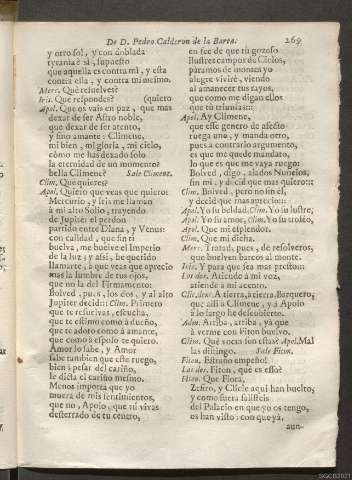 De D. Pedro Calderon de la Barca. 269
y otro sol, y con doblada
tyrania è sì, supuesto
que aquella es contra mi, y esta
contra ella, y contra mi mesmo.
Merc. Què resuelves?
Iris. Que respondes? (quiero
Apol. Que os vais en paz, que mas
dexar de ser Astro noble,
que dexar de ser atento,
y fino amante: Climene,
mi bien, mi gloria, mi cielo,
còmo me has dexado solo
la eternidad de un momento?
bella Climene? Sale Climene.
Clim. Què quieres?
Apol. Quiero que veas que quiero:
Mercurio, y Iris me llaman
à mi alto Solio, trayendo
de Jupiter el perdon
partido entre Diana, y Venus:
con calidad, que sin tì
buelva, me buelve el Imperio
de la luz; y assi, he querido
llamarte, à que veas que aprecio
mas la lumbre de tus ojos,
que no la del Firmamento:
Bolved, pues, los dos, y al alto
Jupiter decid:: Clim. Primero
que te resuelvas, escucha,
que te estimo como à dueño,
que te adoro como à amante,
que como à esposo te quiero.
Amor lo sabe, y Amor
sabe tambien que este ruego,
bien à pesar del cariño,
le dicta el cariño mesmo.
Menos importa que yo
muera de mis sentimientos,
que no, Apolo, que tù vivas
desterrado de tu centro,
en fee de que tù gozoso
ilustres campos de Cielos,
pàramos de montes yo
alegre vivirè, viendo
al amanecer tus rayos,
que como me digan ellos
que tù triunfas::
Apol. Ay Climene,
que esse genero de afecto
ruega uno, y manda otro,
pues a contrario argumento,
es que me quede mandato,
lo que es que me vaya ruego:
Bolved, digo, alados Nuncios,
sin mi, y decid que mas quiero::
Clim. Bolved, pero no sin el,
y decid que mas aprecio::
Apol. Yo su beldad. Clim. Yo su lustre,
Apol. Yo su amor, Clim. Yo su trofeo,
Apol. Que mi esplendor.
Clim. Que mi dicha.
Merc. Tratad, pues, de resolveros,
que buelven barcos al monte.
Iris. Y para que sea mas presto::
Los dos. Atiende à mi voz,
atiende à mi acento.
Clic. dent. A tierra, à tierra, Barquero,
que allì à Climene, y à Apolo
à lo largo he descubierto.
Adm. Arriba, arriba, ya que
à verme con Fiton buelvo.
Clim. Què voces son estas? Apol. Mal
las distingo. Sale Fiton.
Fiton. Estraño empeño!
Los dos. Fiton, què es esso?
Fiton. Que Flora,
Zefiro, y Clicie aqui han buelto;
y como fuera salisteis
del Palacio en que yo os tengo,
os han visto: con que yà,
aun-
SGCB2021